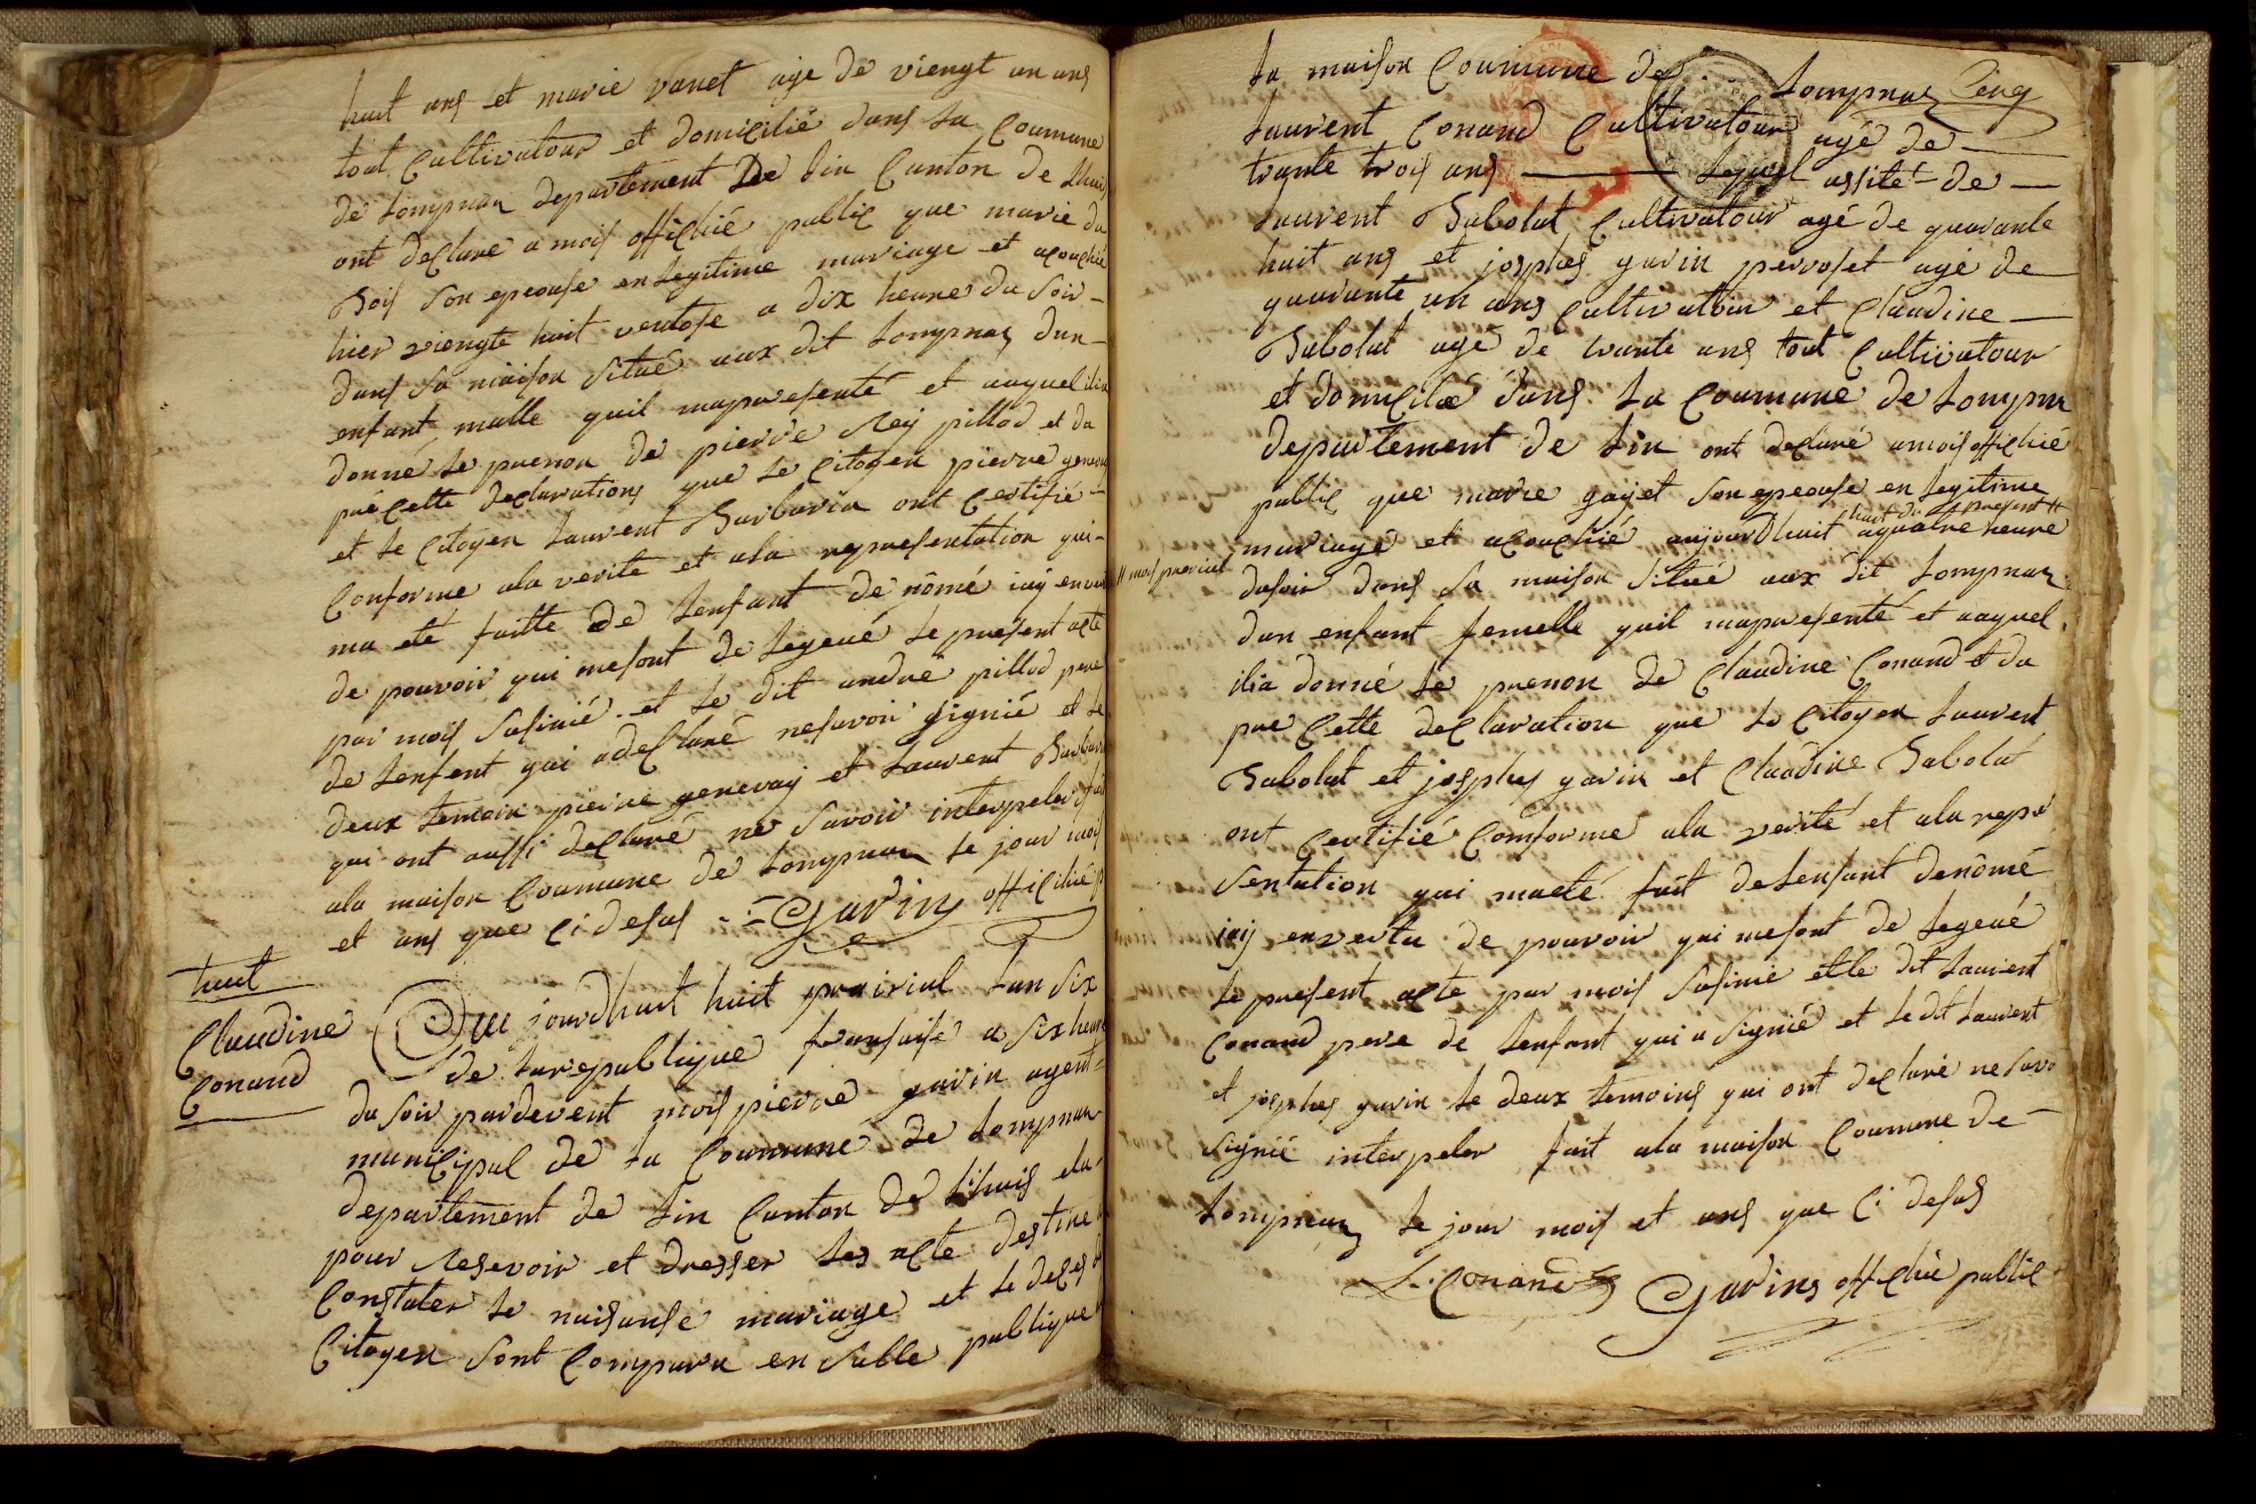 huit ans et marie vanet age de viengt un ans
tout Cultivatour et domicilié dans la Coumune
de Lompnas departement de Lin Canton de Lhuis
ont declare a mois offichié public que marie du
Bois son epeouse en legitime mariage et acouchié
hier viengte huit ventose a dix heure du soir
dans sa maison situé aux dit Lompnas dun
enfant malle quil mapresenté et auquel ilia
donné le prenon de pierre Rey pillod et da
pré Cette declarations que le Citoyen pierre genevay
et le Citoyen Laurent Barbarin ont Certifié
Conforme ala verite et ala representation qui
ma eté faitte de Lenfant de nômé iay en ver
de pouvoir qui mesont de Legeué le present acte
par mois susinié et le dit andré pillod pere
de Lenfent qui adeclaré nesavoir signié et le
deux temoin pierre genevay et Laurent Barbari
qui ont aussi declaré ne savoir interpeler fait
ala maison Coumune de Lompnas le jour mois
et ans que Ci desus Gavin offichié p
huit
Claudine
Conand
Au jourdhuit huit prairial Lan six
de Larepublique fransaise a six heure
du soir pardevent mois pierre gavin agent
municipal de La Coumune de Lompnas
departement de Lin Canton de Lihuis elu
pour Resevoir et dresser Les acte destine
Constater le naisanse mariage et le deces
Citoyen sont Comparu en salle publique
La maison Coumune de Lompnas Cinq
Laurent Conand Cultivatour agé de
trante trois ans Lequel assité de
Laurent Babolat Cultivatour agé de quarante
huit ans et josphes gavin perroset agé de
quarante un ans Cultivatour et Claudine
Babolat agé de trante ans tout Cultivatour
et domicilié dans La Coumune de Lompna
departement de Lin ont declaré amois offichié
public que marie gayet son epeouse en legitime
huit du present //
mariage et acouchié aujourdhuit aquatre heure
// mois prerial
dusoir dans sa maison situé aux dit Lompnas
dun enfant femelle quil mapresenté et auquel
ilia donné le prenon de Claudine Conand et da
pre Cette declaration que le Citoyen Laurent
Babolat et josphes gavin et Claudine Babolat
ont Certifié Comforme ala verité et ala repre
sentation qui maeté fait de Lenfant denômé
iay envertu de pouvoir qui mesont de Legeué
le present acte par mois susinie et le dit Laurent
Conand pere de Lenfant qui a signié et le dit Laurent
et josphes gavin le deux temoins qui ont declaré ne savo
signié interpeler fait ala maison Coumune de
Lompnas le jour mois et ans que Ci desus
L. Conand Gavin offichié public